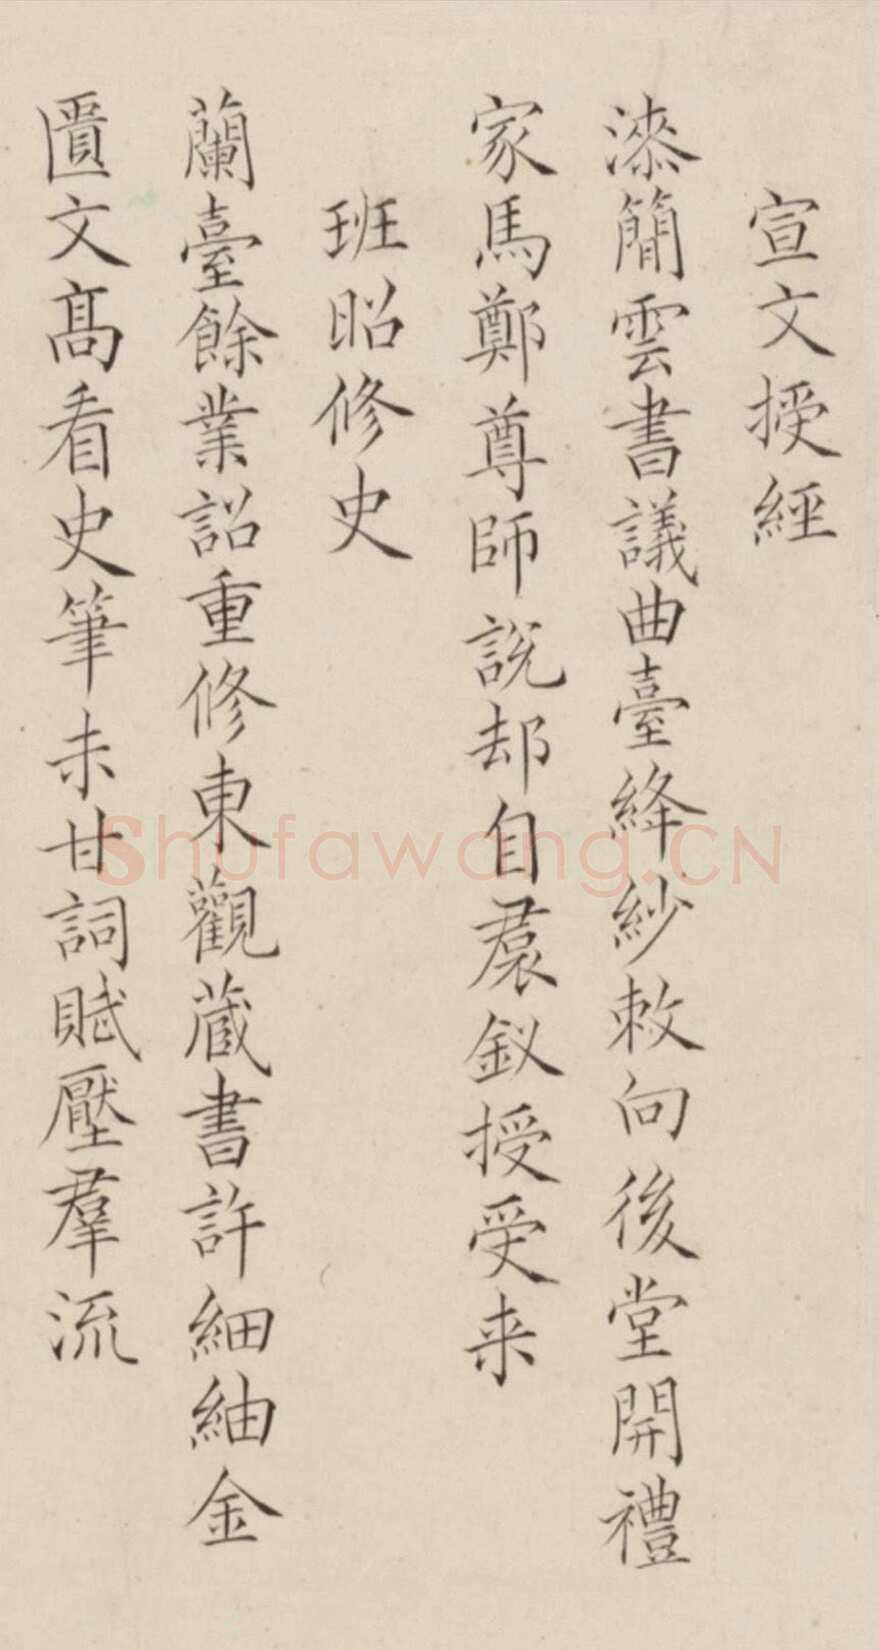 宣文授經
漆簡雲書議曲臺絳紗敕向後堂開禮
家馬鄭尊師說却自裠釵授受来
班昭修史
蘭臺餘業詔重修東觀蔵書許細紬金
匱文高看史筆未甘詞賦壓羣流
Shufawang.CN